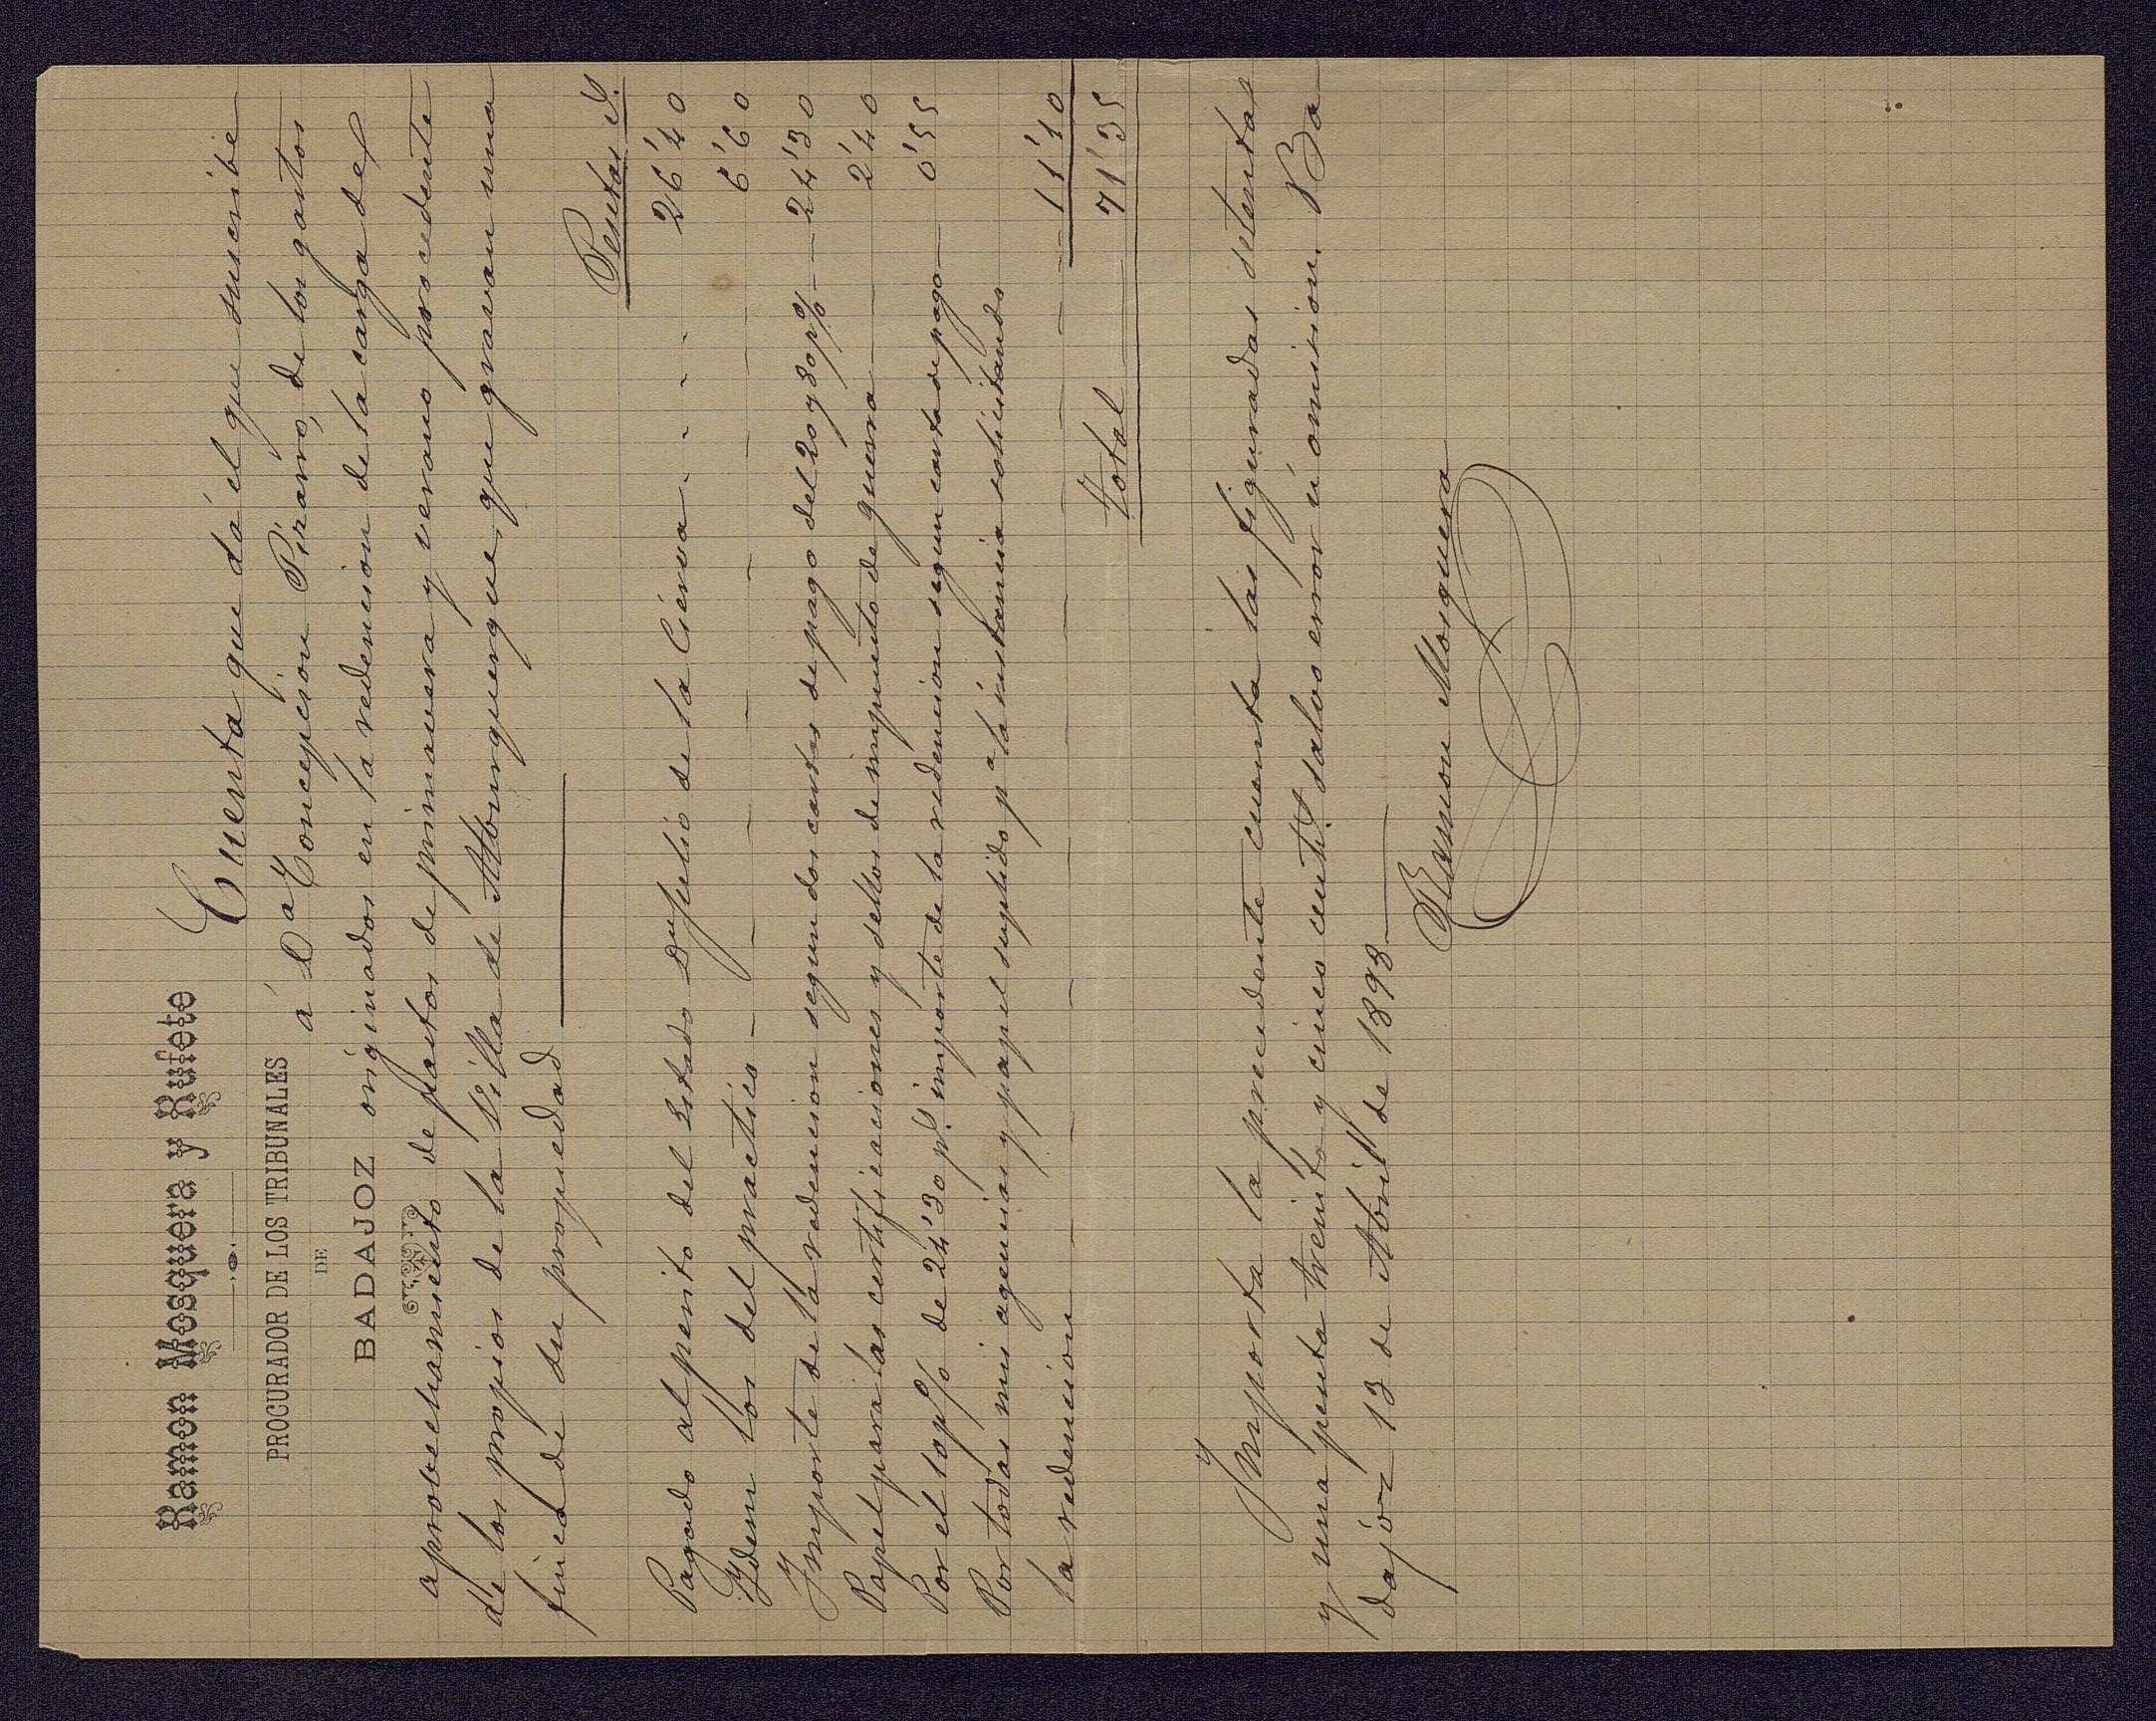 Ramon Mosquera y Rufete
PROCURADOR DE LOS TRIBUNALES
DE
BADAJOZ
Cuenta que dá el que suscribe
á Dª Concepcion Pizarro, de los gastos
originados en la redencion de la carga del
aprobechamiento de pastos de primavera y verano procedente
de los propios de la Villa de Alburquerque, que gravan una
finca de su propiedad
Pesetas Cs.
Pagado al perito del Estado Dn Julio de la Cierva - - - - 26'40
Ydem los del practico - - - - - - 6'60
Ymporte de la redencion segun dos cartas de pago del 20 y 80 p% - - 24'30
Papel para las certificaciones y sellos de impuesto de guerra - 2'40
Por el 1 a p% de 24'30 ps. importe de la redencion segun carta de pago - 0'55
Por todas mis agencias y papel suplido pª la instancia solicitando
la redencion - - - - - - - 11'10
Total 71'35
Ymporta la precedente cuenta las figuradas setentas
y una peseta treinta y cinco centits. salvo error ú omision. Ba
dajoz 13 de Abril de 1898
Ramon Mosquera